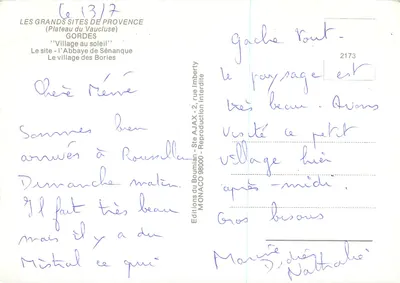 Le 13/7
LES GRANDS SITES DE PROVENCE
(Plateau du Vaucluse)
GORDES
"Village au soleil"
Le site - l'Abbaye de Sénanque
Le village des Bories
Chère Mémé
Sommes bien
arrivés à Roussillon
Dimanche matin.
Il fait très beau
mais il y a du
Mistral ce qui
Editions du Boumian - Sté AJAX - 2, rue Imberty
MONACO 98000 - Reproduction interdite
gache tout.
2173
le paysage est
très beau. Avons
visité ce petit
village hier
après-midi.
Gros bisous
Didier
Nathalie